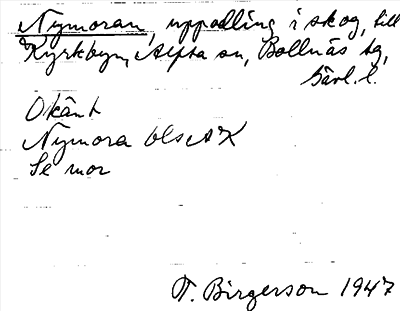 Nymoran, uppodling i skog, till
Kyrkbyn, Alfta sn, Bollnäs tg,
Gävl. l.
Okänt
Nymora OlsAK
Se mor
T. Birgerson 1947